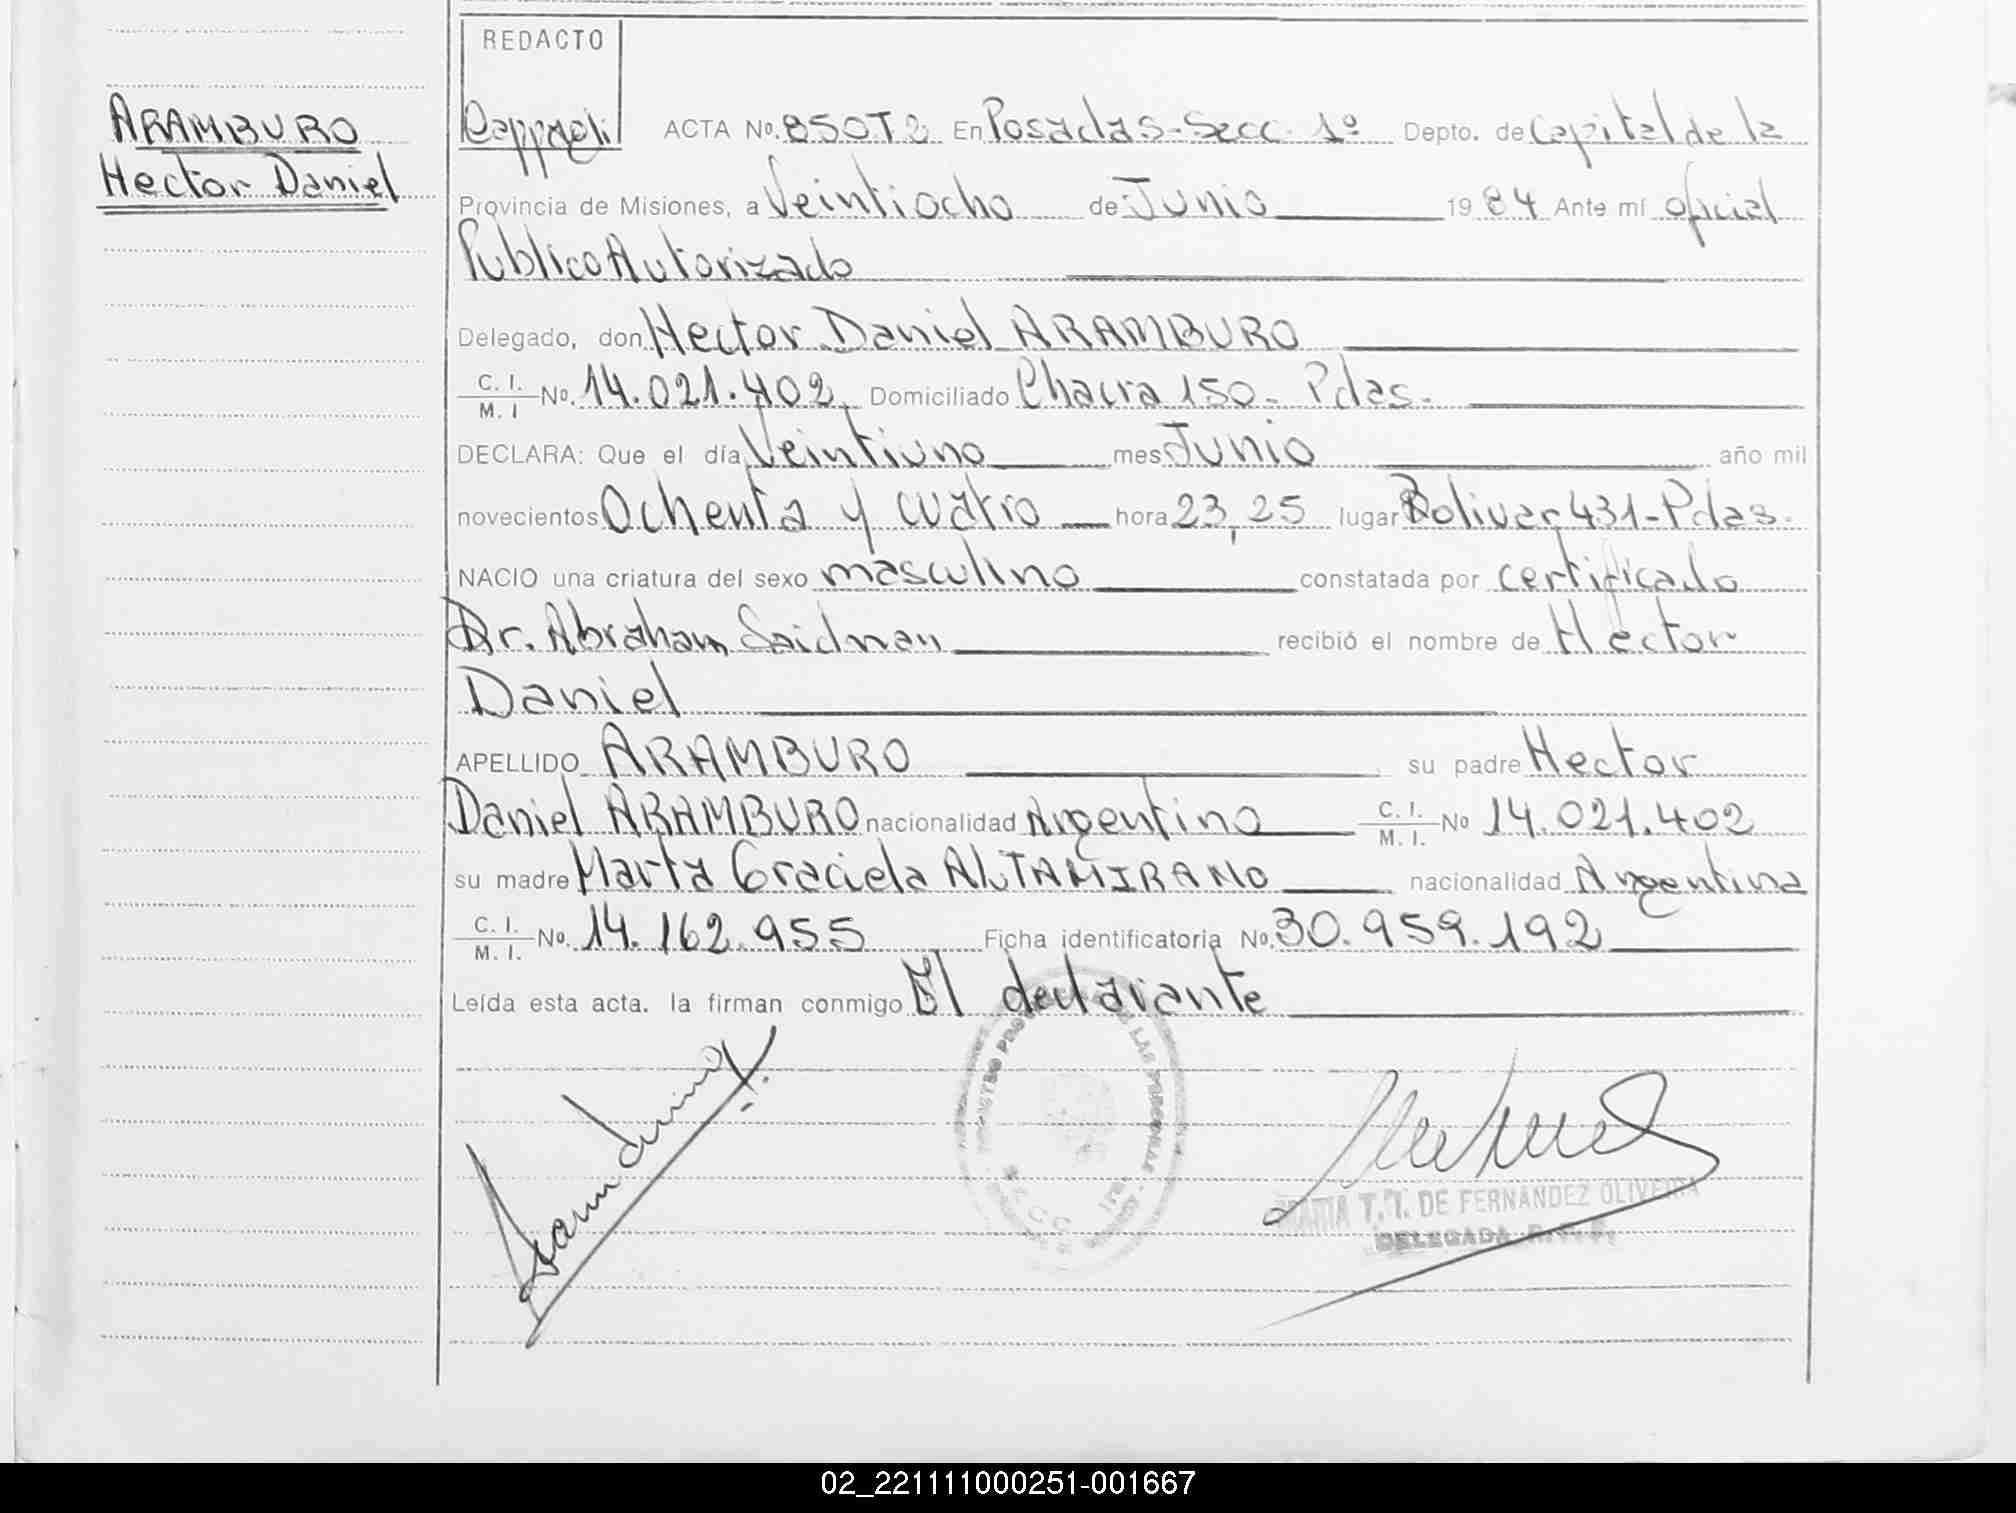 REDACTO
ARAMBURO
Hector Daniel
ACTA Nº. 850T2 En Posadas-Secc. 1º Depto. de Capital de la
Provincia de Misiones, a Veintiocho de Junio 1984 Ante mí oficial
Publico Autorizado
Delegado, don Hector Daniel ARAMBURO
C. I. / M. I Nº. 14.021.402 Domiciliado Chacra 150- Pdas.
DECLARA: Que el día Veintiuno mes Junio año mil
novecientos Ochenta y cuatro hora 23,25 lugar Bolivar 431-Pdas.
NACIO una criatura del sexo masculino constatada por certificado
Dr. Abraham Saidman recibió el nombre de Hector
Daniel
APELLIDO ARAMBURO su padre Hector
Daniel ARAMBURO nacionalidad Argentino C. I. / M. I. Nº 14.021.402
su madre Marta Graciela ALTAMIRANO nacionalidad Argentina
C. I. / M. I. Nº. 14.162.955 Ficha identificatoria Nº. 30.959.192
Leída esta acta. la firman conmigo El declarante
LAS PERSONAS
T. I. DE FERNANDEZ OLIVEIRA
DELEGADA
02_221111000251-001667